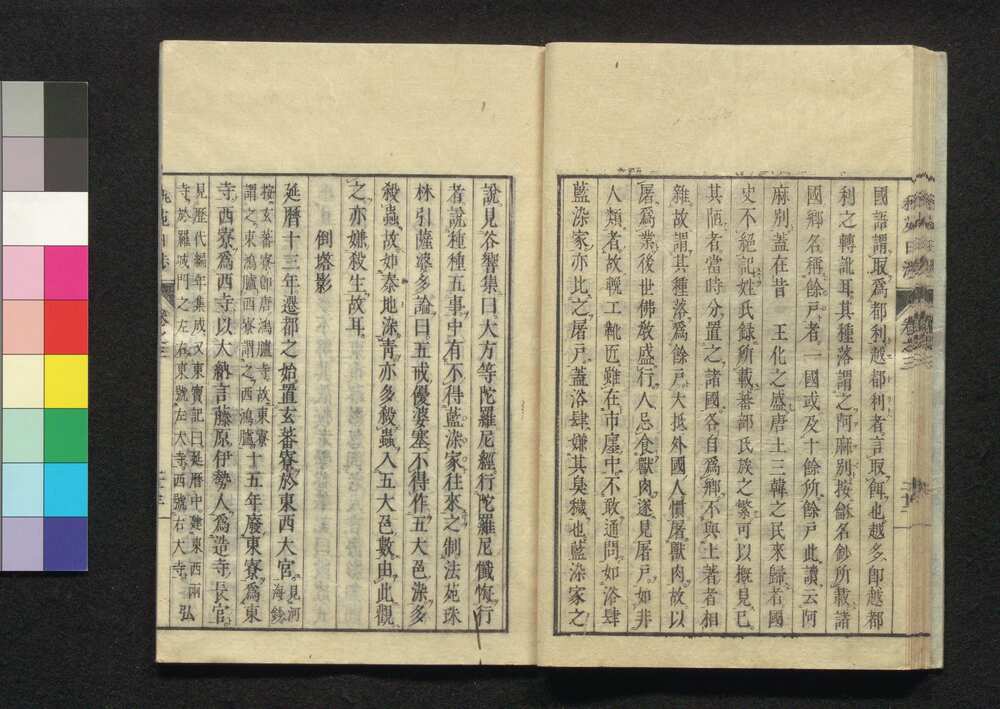 國語謂取爲都利越都利者言取餌也越多卽越都
利之轉訛耳其種落謂之阿麻別按龢名鈔所載諸
國鄉名稱餘戸者一國或及十餘所餘戸此讀云阿
麻別蓋在昔　王化之盛唐土三韓之民來歸者國
史不絕記姓氏録所載蕃部氏族之繁可以概見已
其陋者當時分置之諸國各自爲鄉不與土著者相
雜故謂其種落爲餘戸大抵外國人慣屠獸肉故以
屠爲業後世佛敎盛行人忌食獸肉遂見屠戸如非
人類者故輓工靴匠雖在市廛中不敢通問如浴肆
藍染家亦比之屠戸蓋浴肆嫌其臭穢也藍染家之
說見谷響集曰大方等陀羅尼經行陀羅尼懺悔行
者說種種五事中有不得藍染家往來之制法苑珠
林引薩婆多論曰五戒優婆塞不得作五大邑染多
殺蟲故如秦地染靑亦多殺蟲入五大邑數由此觀
之亦嫌殺生故耳
倒塔影
延曆十三年遷都之始置玄蕃寮於東西大官見河海鈔
按玄蕃寮卽唐鴻臚寺故東寮謂之東鴻臚西寮謂之西鴻臚十五年廢東寮爲東
寺西寮爲西寺以大納言藤原伊勢人爲造寺長官
見歷代編年集成又東寶記曰延曆中建東西兩寺於羅城門之左右東號左大寺西號右大寺弘